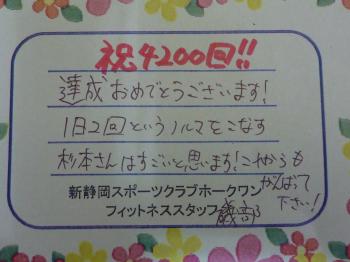 祝4200回!!
達成おめでとうございます!
1日2回というノルマをこなす
杉本さんはすごいと思います!これからも
がんばって
下さい!
新静岡スポーツクラブホークワン
フィットネススタッフ